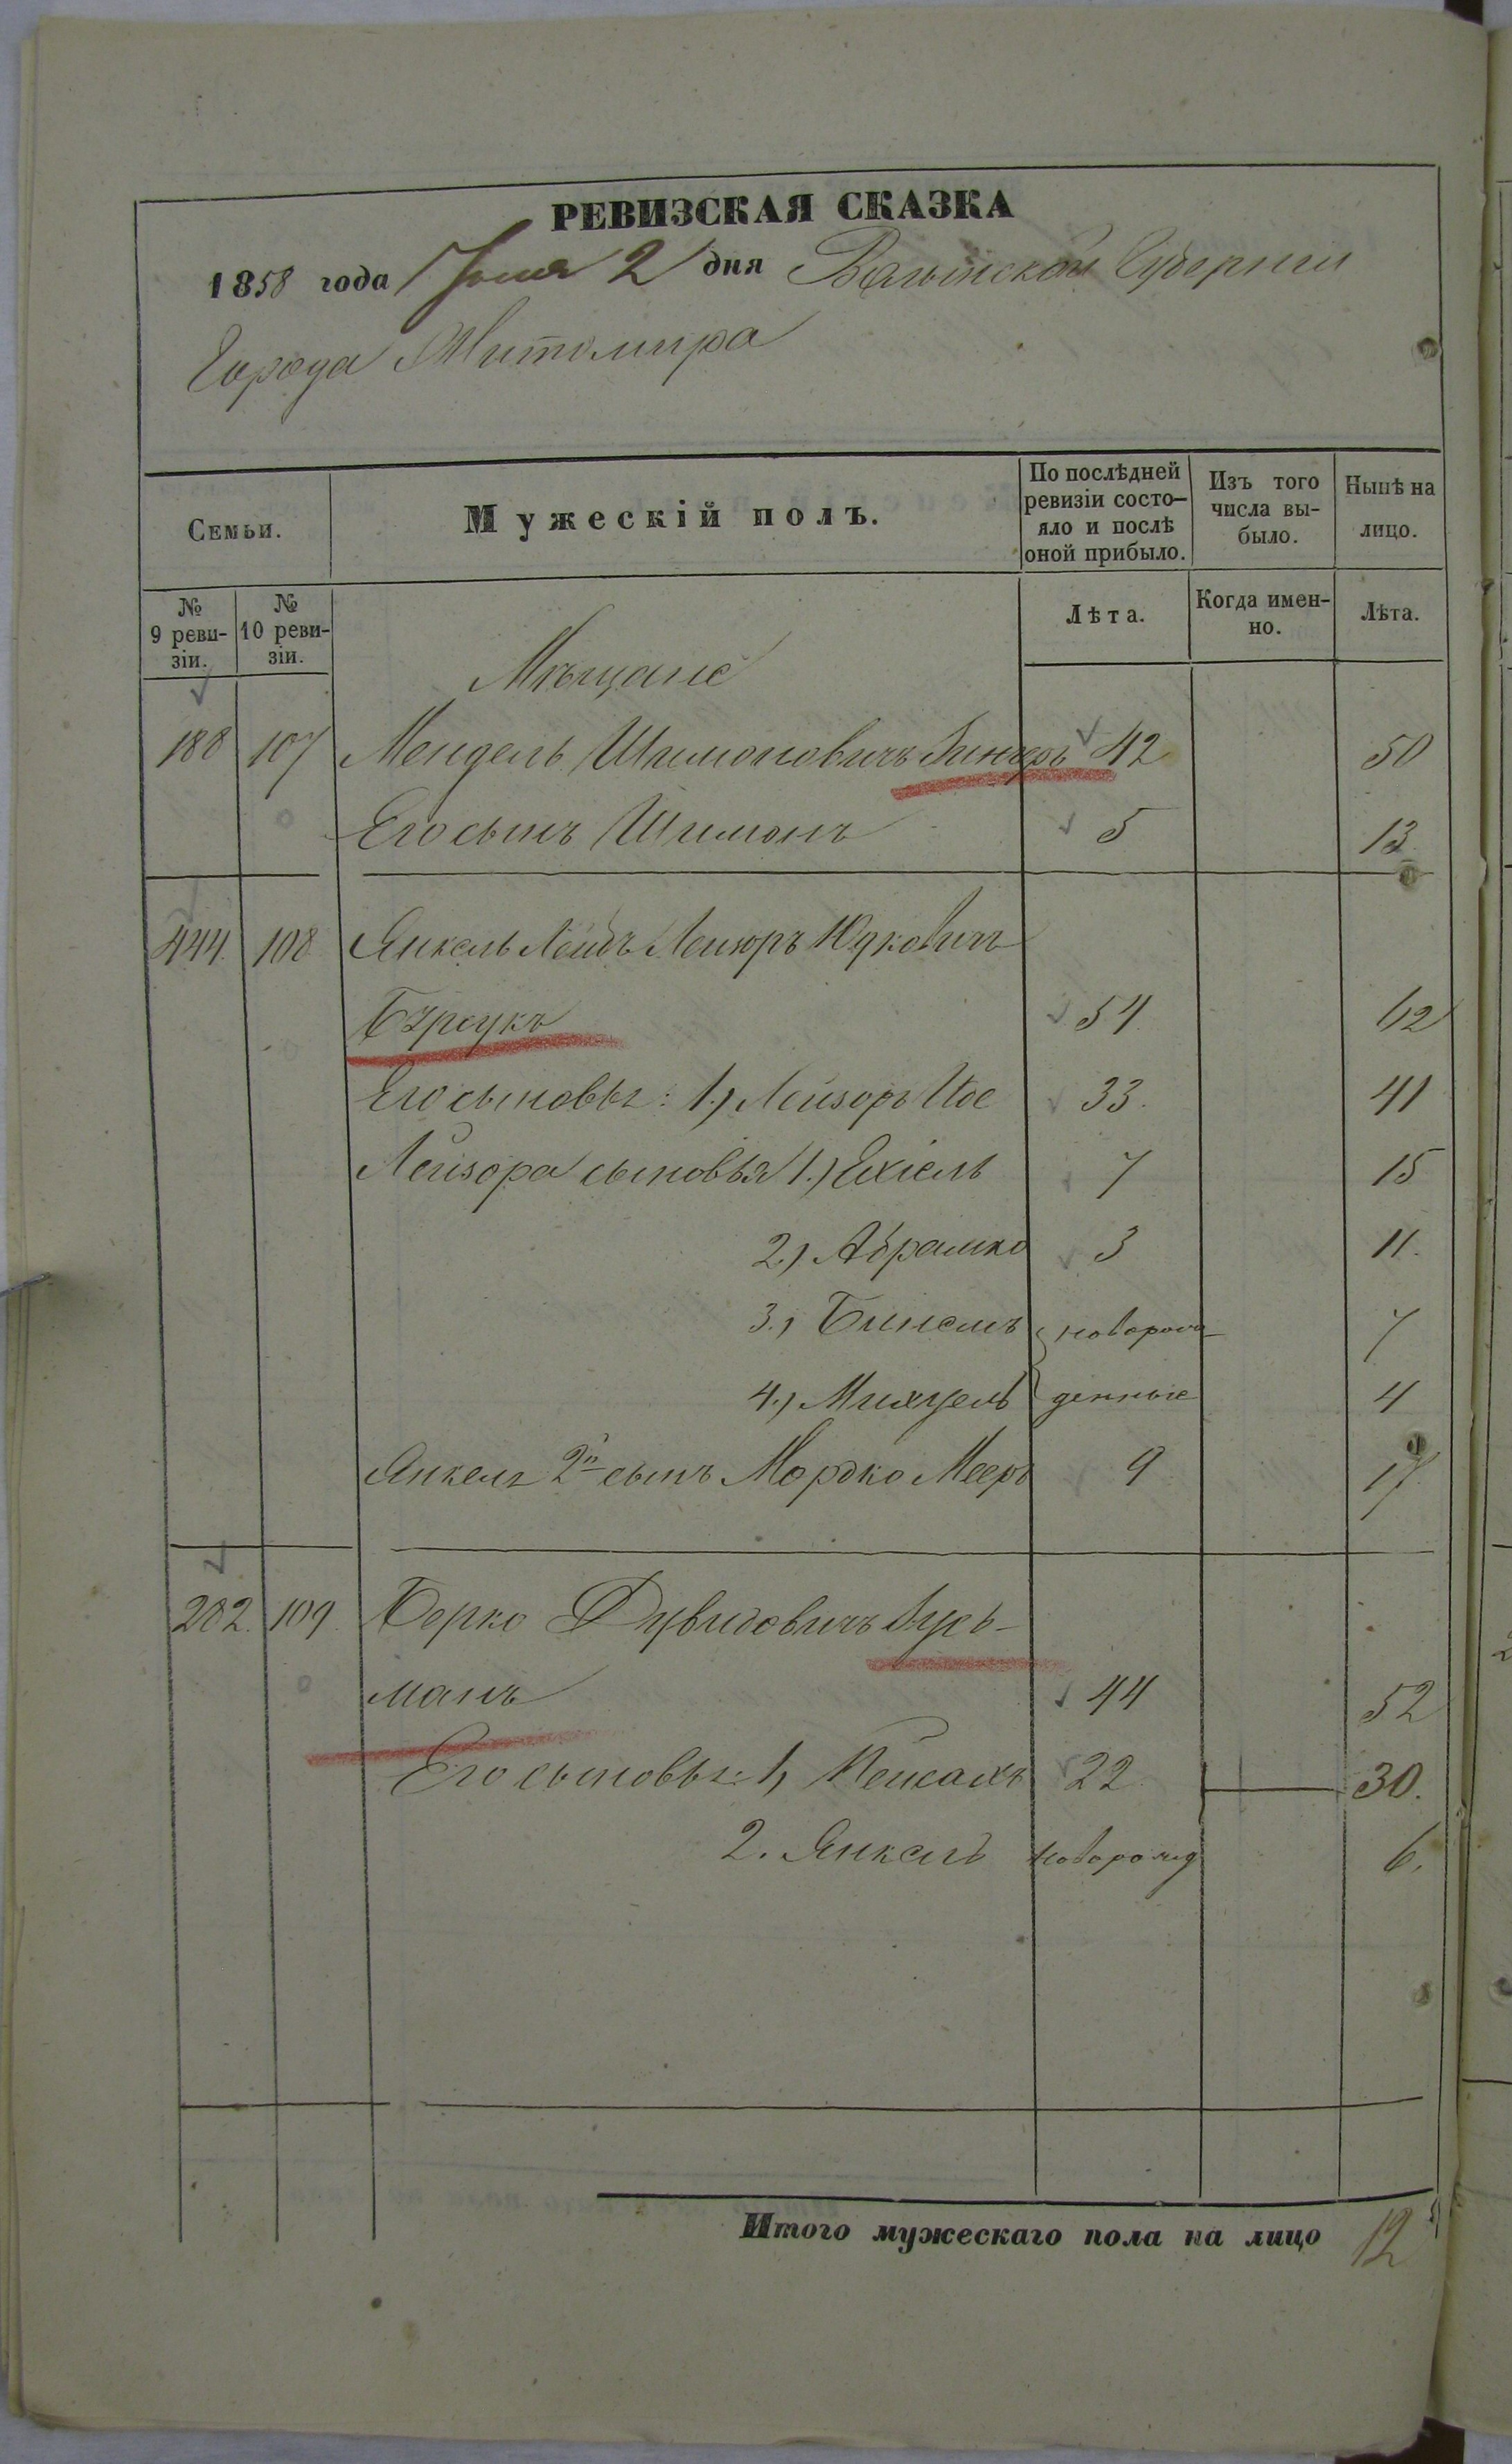 РЕВИЗСКАЯ СКАЗКА
1858 года Іюня 2 дня Волынской Губерніи
Города Житомира
Семьи.
Мужескій полъ.
По послѣдней ревизіи состо-
яло и послѣ оной прибыло.
Изъ того числа вы-
было.
Нынѣ на лицо.
№ 9 реви-
зіи.
№ 10 реви-
зіи.
Лѣта.
Когда имен-
но.
Лѣта.
Мѣщане
188 107 Мендель Шимоновичъ 42 50
Его сынъ Шимонъ 5 13
444 108 Янкель Лейбъ Юдковичъ
54 62
Его сыновья: 1.) Лейзоръ Іос 33. 41
Лейзора сыновья 1.) Ехіель 7 15
2.) Абрамко 3 11.
3.) новорож- 7
4.) Михуель денные 4
Янкеля 2й сынъ Мордко Мееръ 9 17
282. 109. Берко Дувидовичъ Зусь-
манъ 44 52
Его сыновья: 1, Пейсахъ 22 30.
2. Янкель новорожд 6.
Итого мужескаго пола на лицо 12